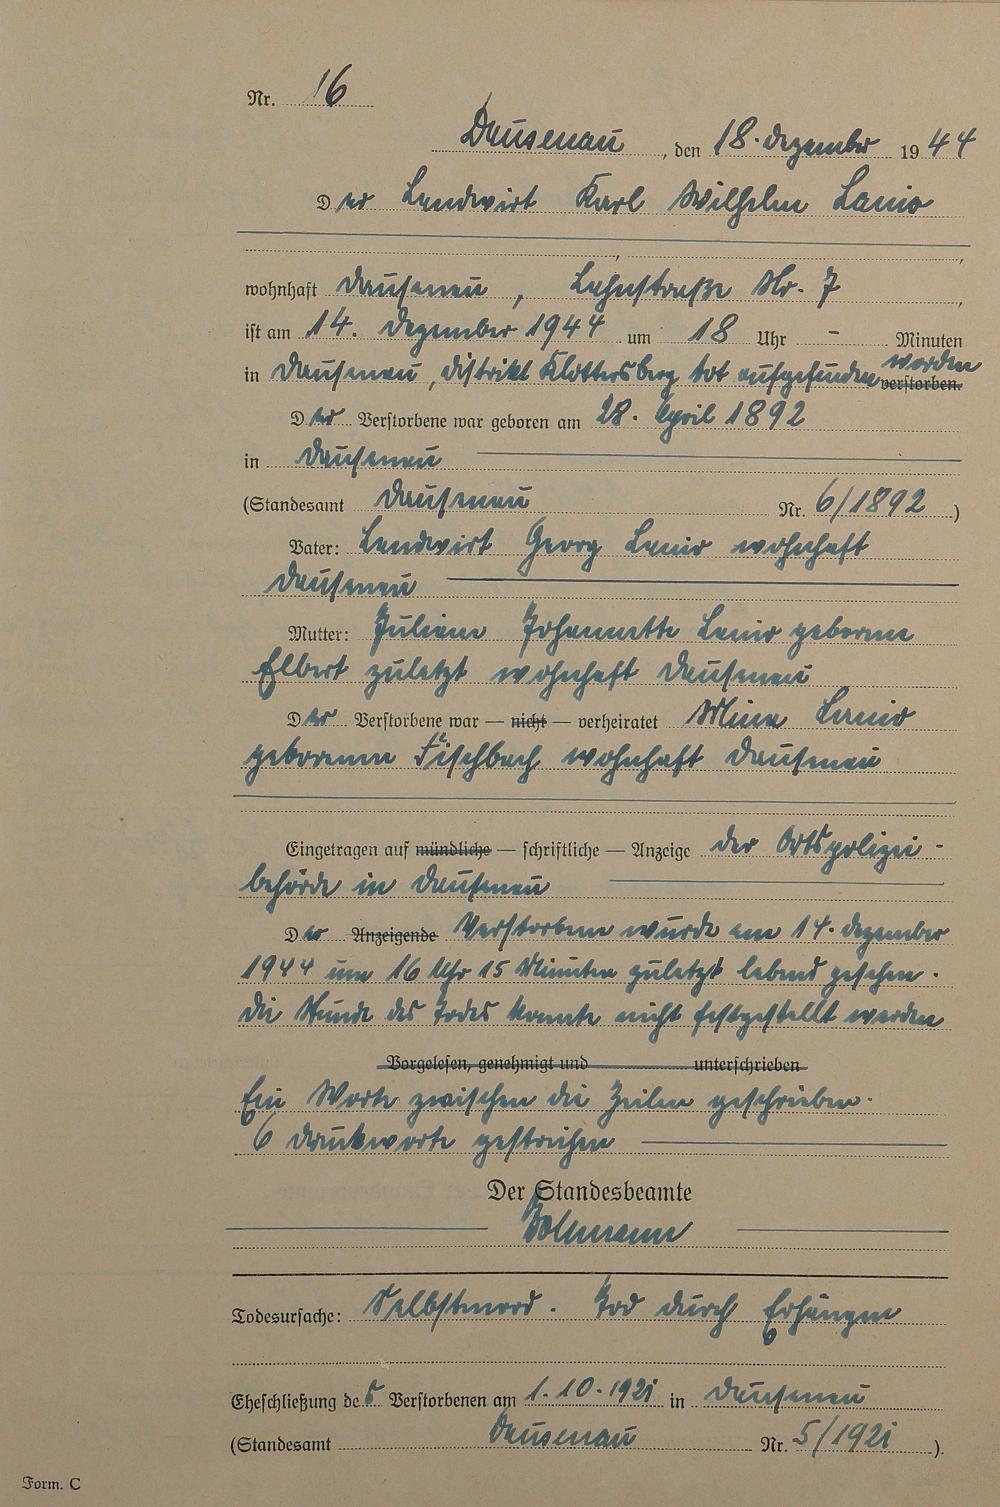 Nr. 16
Dausenau, den 18. Dezember 1944
Der Landwirt Karl Wilhelm Lanio
wohnhaft Dausenau, Lahnstraße Nr. 7,
ist am 14. Dezember 1944 um 18 Uhr - Minuten
worden
in Dausenau, Distrikt Klottersberg tot aufgefunden verstorben.
Der Verstorbene war geboren am 28. April 1892
in Dausenau
(Standesamt Dausenau Nr. 6/1892)
Vater: Landwirt Georg Lanio wohnhaft
Dausenau
Mutter: Juliane Johannette Lanio geborene
Elbert zuletzt wohnhaft Dausenau
Der Verstorbene war — nicht — verheiratet Mina Lanio
geborenen Fischbach wohnhaft Dausenau
Eingetragen auf mündliche — schriftliche — Anzeige der Ortspolizei-
behörde in Dausenau
Der Anzeigende Verstorbene wurde am 14. Dezember
1944 um 16 Uhr 15 Minuten zuletzt lebend gesehen.
Die Stunde des Todes konnte nicht festgestellt werden
Vorgelesen, genehmigt und unterschrieben
Ein Worte zwischen die Zeilen geschrieben.
6 Druckworte gestrichen
Der Standesbeamte
Todesursache: Selbstmord. Tod durch Erhängen
Eheschließung des Verstorbenen am 1.10.1921 in Dausenau
(Standesamt Dausenau Nr. 5/1921).
Form. C